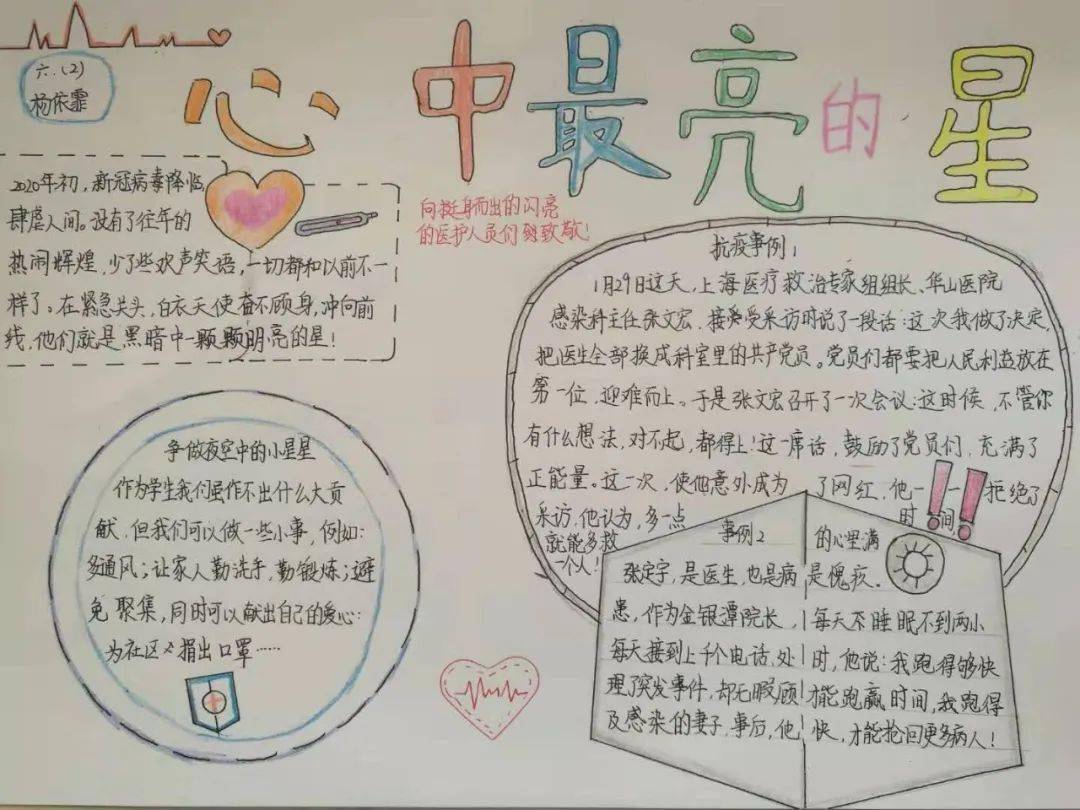 六.(2)
杨依霏
心中最亮的星
2020年初,新冠病毒降临,
肆虐人间。没有了往年的
热闹辉煌,少了些欢声笑语,一切都和以前不一
样了。在紧急关头,白衣天使奋不顾身,冲向前
线,他们就是黑暗中一颗颗明亮的星!
向挺身而出的闪亮
的医护人员们 致敬!
争做夜空中的小星星
作为学生我们虽作不出什么大贡
献,但我们可以做一些小事,例如:
多通风;让家人勤洗手,勤锻炼;避
免聚集,同时可以献出自己的爱心:
为社区 捐出口罩……
抗疫事例1
1月29日这天,上海医疗救治专家组组长、华山医院
感染科主任张文宏,接受采访时说了一段话:这次我做了决定,
把医生全部换成科室里的共产党员。党员们都要把人民利益放在
第一位,迎难而上。于是张文宏召开了一次会议:这时候,不管你
有什么想法,对不起,都得上!这一席话,鼓励了党员们,充满了
正能量。这一次,使他意外成为了网红,他一一拒绝了
采访,他认为,多一点时间
就能多救
一个人!
事例2
张定宇,是医生,也是病
患,作为金银潭院长,
每天接到上千个电话,处
理了突发事件,却无暇顾
及感染的妻子,事后,他
的心里满
是愧疚、
每天不睡眠不到两小
时,他说:我跑得够快
才能跑赢时间,我跑得
快,才能抢回更多病人!